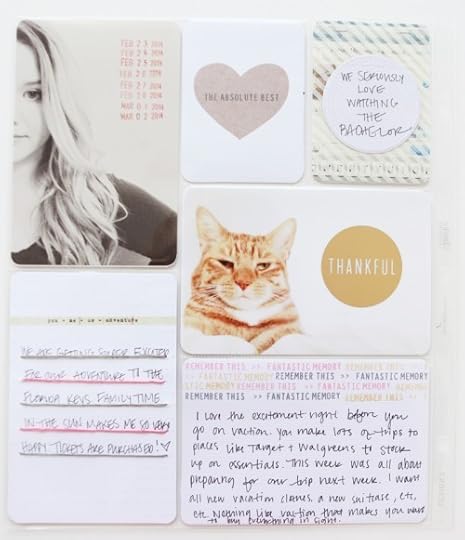 FEB 23 2014
FEB 24 2014
FEB 25 2014
FEB 26 2014
FEB 27 2014
FEB 28 2014
MAR 01 2014
MAR 02 2014
THE ABSOLUTE BEST
WE SERIOUSLY
LOVE
WATCHING
THE
BACHELOR
THANKFUL
you - me - us - adventure
WE ARE GETTING SOOOOO EXCITED
FOR OUR ADVENTURE TO THE
FLORIDA KEYS. FAMILY TIME
IN THE SUN MAKES ME SO VERY
HAPPY. TICKETS ARE PURCHASED!
REMEMBER THIS >> FANTASTIC MEMORY REMEMBER THIS
>> FANTASTIC MEMORY REMEMBER THIS >> FANTASTIC
FANTASTIC MEMORY REMEMBER THIS >> FANTASTIC MEMORY REMEMBER
REMEMBER THIS >> FANTASTIC MEMORY REMEMBER THIS >>
I love the excitement right before you
go on vaction. you make lots of trips to
places like Target + Walgreens to stock
up on essentials. This week was all about
preparing for our trip next week. I want
all new vacation clothes, a new suitcase, etc,
etc. Nothing like vaction that makes you want
to buy everything in sight.